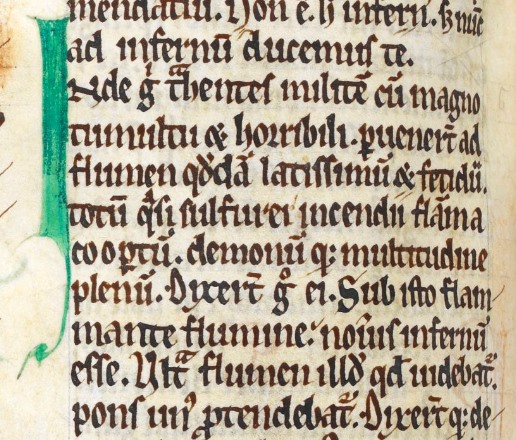 mendatiu. Non e. h̄ infern. ſz nūc
ad infernū ducemus te.
Inde g̊ trͣhentes militē cū magno
tumultu & horribili. puenerūt ad
flumen qͦddā latissimū & fetidū.
totū qͣsi sulfurei incendii flāma
coopꝑtū. demonū q; multitudine
plenū. Dixerūt g̊ ei. Sub isto flam
mante flumine noūis infernū
esse. Ultͣ flumen illd̄ qd̄ uidebatͬ.
pons un' ꝓtendebatͬ. Dixerūt q; de